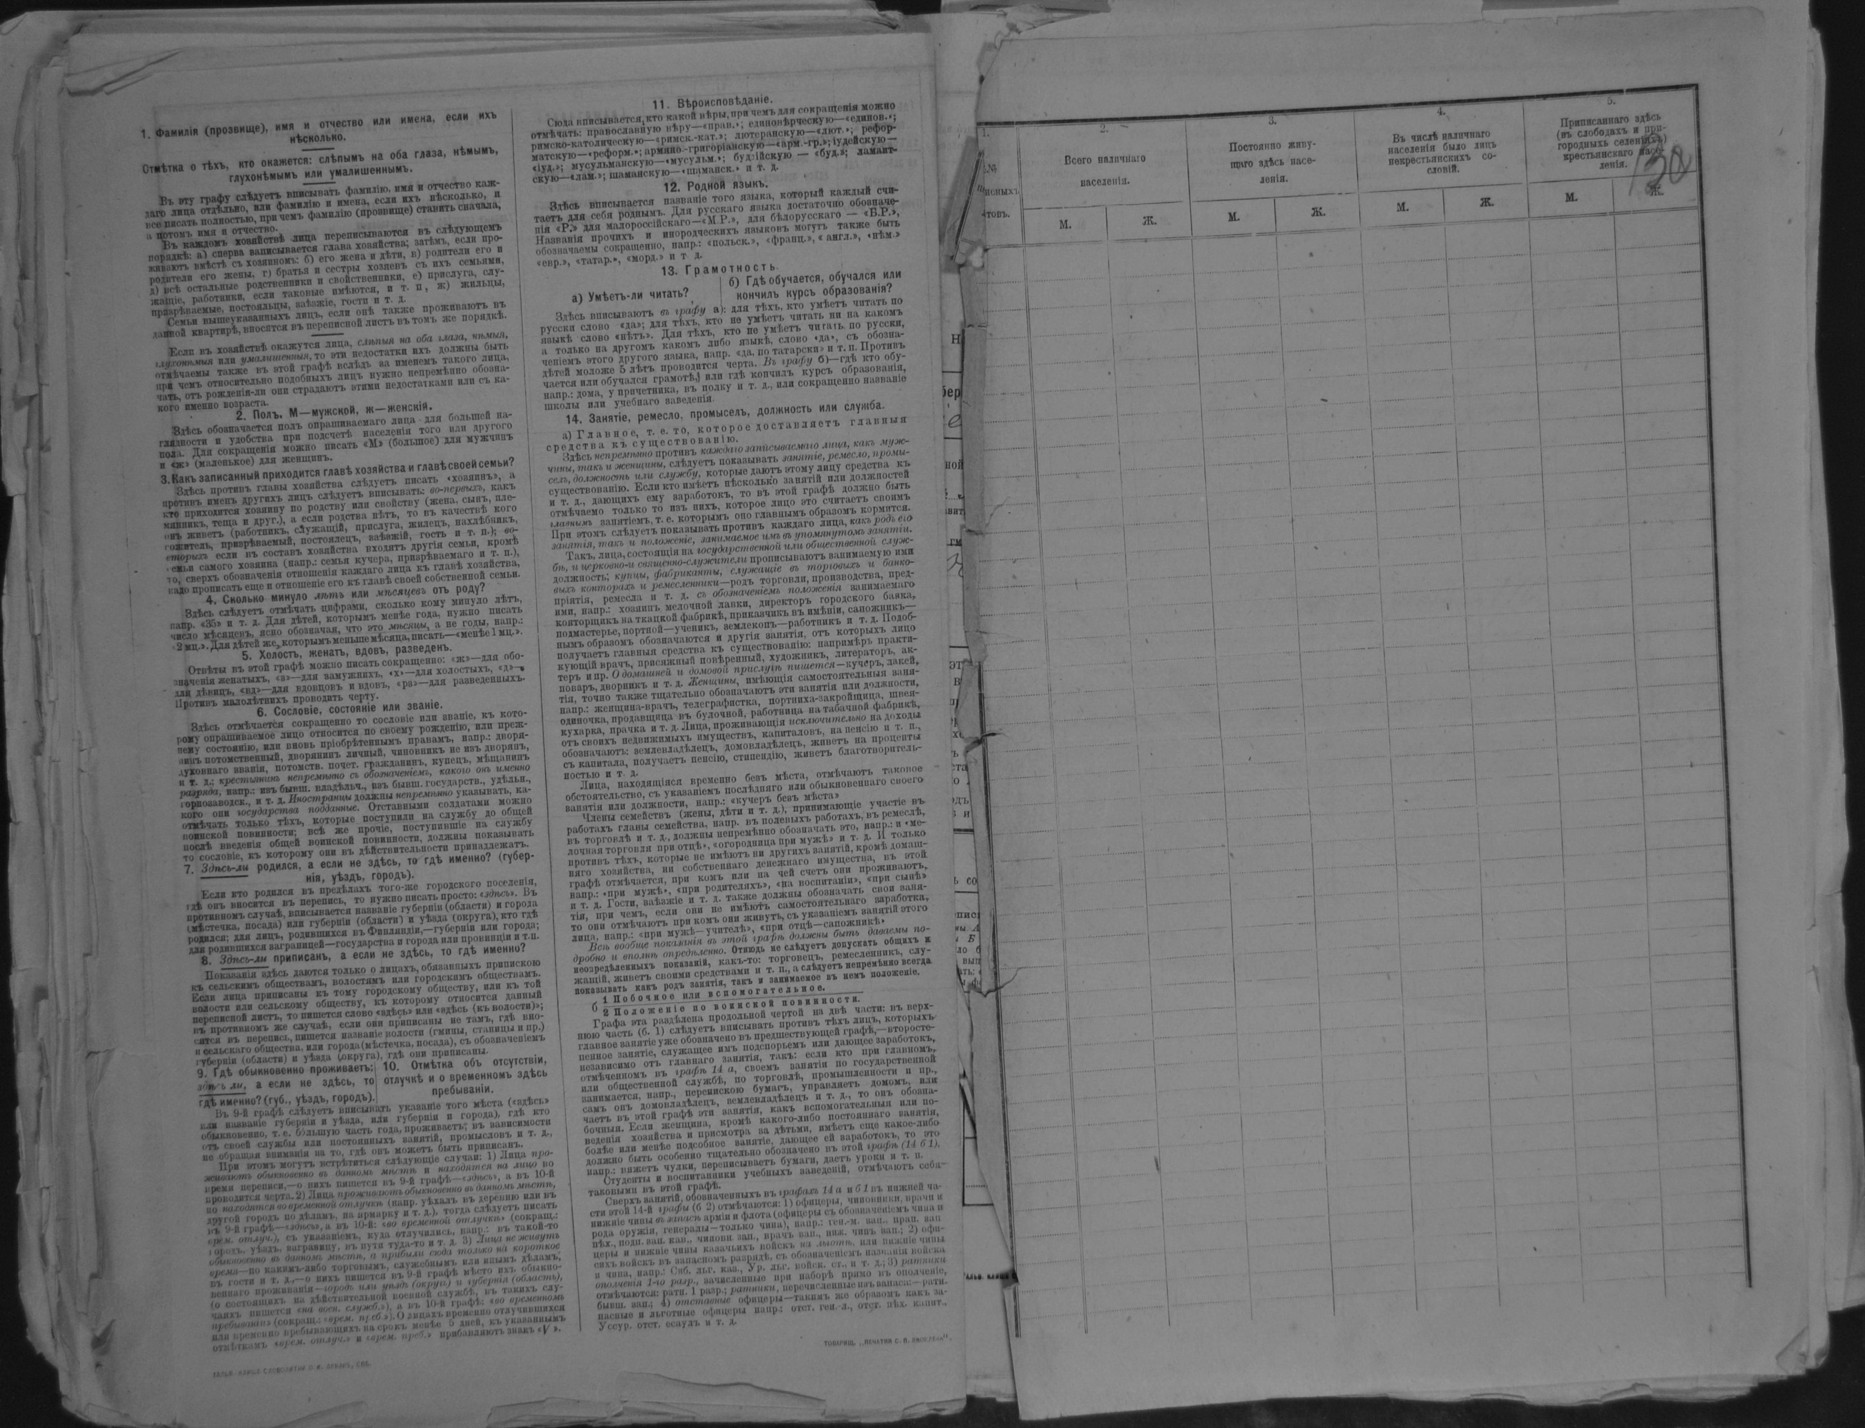 1. Фамилія (прозвище), имя и отчество или имена, если ихъ
нѣсколько.
Отмѣтка о тѣхъ, кто окажется: слѣпымъ на оба глаза, нѣмымъ,
глухонѣмымъ или умалишеннымъ.
Въ эту графу слѣдуетъ вписывать фамилію, имя и отчество каж-
даго лица отдѣльно, или фамилію и имена, если ихъ нѣсколько, и
все писать полностью, при чемъ фамилію (прозвище) ставить сначала,
а потомъ имя и отчество.
Въ каждомъ хозяйствѣ лица переписываются въ слѣдующемъ
порядкѣ: а) сперва записывается глава хозяйства; затѣмъ, если про-
живаютъ вмѣстѣ съ хозяиномъ: б) его жена и дѣти, в) родители его и
родители его жены, г) братья и сестры хозяевъ съ ихъ семьями,
д) всѣ остальные родственники и свойственники, е) прислуга, слу-
жащіе, работники, если таковые имѣются, и т. п., ж) жильцы,
призрѣваемые, постояльцы, заѣзжіе, гости и т. д.
Семьи вышеуказанныхъ лицъ, если онѣ также проживаютъ въ
данной квартирѣ, вносятся въ переписной листъ въ томъ же порядкѣ.
Если въ хозяйствѣ окажутся лица, слѣпыя на оба глаза, нѣмыя,
глухонѣмыя или умалишенныя, то эти недостатки ихъ должны быть
отмѣчаемы также въ этой графѣ вслѣдъ за именемъ такого лица,
при чемъ относительно подобныхъ лицъ нужно непремѣнно обозна-
чать, отъ рожденія-ли они страдаютъ этими недостатками или съ ка-
кого именно возраста.
2. Полъ. М—мужской, ж—женскій.
Здѣсь обозначается полъ опрашиваемаго лица для большей на-
глядности и удобства при подсчетѣ населенія того или другого
пола. Для сокращенія можно писать «М» (большое) для мужчинъ
и «ж» (маленькое) для женщинъ.
3. Какъ записанный приходится главѣ хозяйства и главѣ своей семьи?
Здѣсь противъ главы хозяйства слѣдуетъ писать «хозяинъ», а
противъ именъ другихъ лицъ слѣдуетъ вписывать: во-первыхъ, какъ
кто приходится хозяину по родству или свойству (жена, сынъ, пле-
мянникъ, теща и друг.), а если родства нѣтъ, то въ качествѣ кого
онъ живетъ (работникъ, служащій, прислуга, жилецъ, нахлѣбникъ,
сожитель, призрѣваемый, постоялецъ, заѣзжій, гость и т. п.); во-
вторыхъ если въ составъ хозяйства входятъ другія семьи, кромѣ
семьи самого хозяина (напр.: семья кучера, призрѣваемаго и т. п.),
то, сверхъ обозначенія отношенія каждаго лица къ главѣ хозяйства,
надо прописать еще и отношеніе его къ главѣ своей собственной семьи.
4. Сколько минуло лѣтъ или мѣсяцевъ отъ роду?
Здѣсь слѣдуетъ отмѣчать цифрами, сколько кому минуло лѣтъ,
напр. «35» и т. д. Для дѣтей, которымъ менѣе года, нужно писать
число мѣсяцевъ, ясно обозначая, что это мѣсяцы, а не годы, напр.:
«2 мц.». Для дѣтей же, которымъ меньше мѣсяца, писать—«менѣе 1 мц.».
5. Холостъ, женатъ, вдовъ, разведенъ.
Отвѣты въ этой графѣ можно писать сокращенно: «ж»—для обо-
значенія женатыхъ, «з»—для замужнихъ, «х»—для холостыхъ, «д»—
для дѣвицъ, «вд»—для вдовцовъ и вдовъ, «рз»—для разведенныхъ.
Противъ малолѣтнихъ проводить черту.
6. Сословіе, состояніе или званіе.
Здѣсь отмѣчается сокращенно то сословіе или званіе, къ кото-
рому опрашиваемое лицо относится по своему рожденію, или преж-
нему состоянію, или вновь пріобрѣтеннымъ правамъ, напр.: дворя-
нинъ потомственный, дворянинъ личный, чиновникъ не изъ дворянъ,
духовнаго званія, потомств. почет. гражданинъ, купецъ, мѣщанинъ
и т. д.; крестьянинъ непремѣнно съ обозначеніемъ, какого онъ именно
разряда, напр.: изъ бывш. владѣльч., изъ бывш. государств., удѣльн.,
горнозаводск., и т. д. Иностранцы должны непремѣнно указывать, ка-
кого они государства подданные. Отставными солдатами можно
отмѣчать только тѣхъ, которые поступили на службу до общей
воинской повинности; всѣ же прочіе, поступившіе на службу
послѣ введенія общей воинской повинности, должны показывать
то сословіе, къ которому они въ дѣйствительности принадлежатъ.
7. Здѣсь-ли родился, а если не здѣсь, то гдѣ именно? (губер-
нія, уѣздъ, городъ).
Если кто родился въ предѣлахъ того-же городского поселенія,
гдѣ онъ вносится въ перепись, то нужно писать просто: «здѣсь». Въ
противномъ случаѣ, вписывается названіе губерніи (области) и города
(мѣстечка, посада) или губерніи (области) и уѣзда (округа), кто гдѣ
родился; для лицъ, родившихся въ Финляндіи,—губерніи или города;
для родившихся заграницей—государства и города или провинціи и т.п.
8. Здѣсь-ли приписанъ, а если не здѣсь, то гдѣ именно?
Показанія здѣсь даются только о лицахъ, обязанныхъ припискою
къ сельскимъ обществамъ, волостямъ или городскимъ обществамъ.
Если лица приписаны къ тому городскому обществу, или къ той
волости или сельскому обществу, къ которому относится данный
переписной листъ, то пишется слово «здѣсь» или «здѣсь (къ волости)»;
въ противномъ же случаѣ, если они приписаны не тамъ, гдѣ вно-
сятся въ перепись, пишется названіе волости (гмины, станицы и пр.)
и сельскаго общества, или города (мѣстечка, посада), съ обозначеніемъ
губерніи (области) и уѣзда (округа), гдѣ они приписаны.
9. Гдѣ обыкновенно проживаетъ:
здѣсь ли, а если не здѣсь, то
гдѣ именно? (губ., уѣздъ, городъ).
10. Отмѣтка объ отсутствіи,
отлучкѣ и о временномъ здѣсь
пребываніи.
Въ 9-й графѣ слѣдуетъ вписывать указаніе того мѣста («здѣсь»
или названіе губерніи и уѣзда, или губерніи и города), гдѣ кто
обыкновенно, т. е. большую часть года, проживаетъ; въ зависимости
отъ своей службы или постоянныхъ занятій, промысловъ и т. д.,
не обращая вниманія на то, гдѣ онъ можетъ быть приписанъ.
При этомъ могутъ встрѣтиться слѣдующіе случаи: 1) Лица про-
живаютъ обыкновенно въ данномъ мѣстѣ и находятся на лицо во
время переписи,—о нихъ пишется въ 9-й графѣ—«здѣсь», а въ 10-й
проводится черта. 2) Лица проживаютъ обыкновенно въ данномъ мѣстѣ,
но находятся во временной отлучкѣ (напр. уѣхалъ въ деревню или въ
другой городъ по дѣламъ, на ярмарку и т. д.), тогда слѣдуетъ писать
въ 9-й графѣ—«здѣсь», а въ 10-й: «во временной отлучкѣ» (сокращ.:
врем. отлуч.), съ указаніемъ, куда отлучились, напр.: въ такой-то
городъ, уѣздъ, заграницу, въ пути туда-то и т. д. 3) Лица не живутъ
обыкновенно въ данномъ мѣстѣ, а прибыли сюда только на короткое
время—по какимъ-либо торговымъ, служебнымъ или инымъ дѣламъ,
въ гости и т. д.,—о нихъ пишется въ 9-й графѣ мѣсто ихъ обыкно-
веннаго проживанія—городъ или уѣздъ (округъ) и губернія (область),
(о состоящихъ на дѣйствительной военной службѣ, въ такихъ слу-
чаяхъ пишется «на воен. службѣ»), а въ 10-й графѣ: «во временномъ
пребываніи» (сокращ.: «врем. преб.»). О лицахъ временно отлучившихся
или временно пребывающихъ на срокъ менѣе 5 дней, къ указаннымъ
отмѣткамъ «врем. отлуч.» и «врем. преб.» прибавляютъ знакъ «V».
11. Вѣроисповѣданіе.
Сюда вписывается, кто какой вѣры, при чемъ для сокращенія можно
отмѣчать: православную вѣру—«прав.»; единовѣрческую—«единов.»;
римско-католическую—«римск.-кат.»; лютеранскую—«лют.»; рефор-
матскую—«реформ.»; армяно-григоріанскую—«арм.-гр.»; іудейскую—
«іуд.»; мусульманскую—«мусульм.»; буддійскую — «буд.»; ламаит-
скую—«лам.»; шаманскую—«шаманск.» и т. д.
12. Родной языкъ.
Здѣсь вписывается названіе того языка, который каждый счи-
таетъ для себя роднымъ. Для русскаго языка достаточно обозначе-
нія «Р.» для малороссійскаго—«М Р.», для бѣлорусскаго — «Б.Р.».
Названія прочихъ и инородческихъ языковъ могутъ также быть
обозначаемы сокращенно, напр.: «польск.», «франц.», «англ.», «нѣм.»
«евр.», «татар.», «морд.» и т. д.
13. Грамотность
а) Умѣетъ-ли читать?
б) Гдѣ обучается, обучался или
кончилъ курсъ образованія?
Здѣсь вписываютъ въ графу а): для тѣхъ, кто умѣетъ читать по
русски слово «да»; для тѣхъ, кто не умѣетъ читать ни на какомъ
языкѣ слово «нѣтъ». Для тѣхъ, кто не умѣетъ читать по русски,
а только на другомъ какомъ либо языкѣ, слово «да», съ обозна-
ченіемъ этого другого языка, напр. «да, по татарски» и т. п. Противъ
дѣтей моложе 5 лѣтъ проводится черта. Въ графу б)—гдѣ кто обу-
чается или обучался грамотѣ, или гдѣ кончилъ курсъ образованія,
напр.: дома, у причетника, въ полку и т. д., или сокращенно названіе
школы или учебнаго заведенія.
14. Занятіе, ремесло, промыселъ, должность или служба.
а) Главное, т. е. то, которое доставляетъ главныя
средства къ существованію.
Здѣсь непремѣнно противъ каждаго записываемаго лица, какъ муж-
чины, такъ и женщины, слѣдуетъ показывать занятіе, ремесло, промы-
селъ, должность или службу, которые даютъ этому лицу средства къ
существованію. Если кто имѣетъ нѣсколько занятій или должностей
и т. д., дающихъ ему заработокъ, то въ этой графѣ должно быть
отмѣчаемо только то изъ нихъ, которое лицо это считаетъ своимъ
главнымъ занятіемъ, т. е. которымъ оно главнымъ образомъ кормится.
При этомъ слѣдуетъ показывать противъ каждаго лица, какъ родъ его
занятія, такъ и положеніе, занимаемое имъ въ упомянутомъ занятіи.
Такъ, лица, состоящія на государственной или общественной служ-
бѣ, и церковно-и священно-служители прописываютъ занимаемую ими
должность; купцы, фабриканты, служащіе въ торговыхъ и банко-
выхъ конторахъ и ремесленники—родъ торговли, производства, пред-
пріятія, ремесла и т. д. съ обозначеніемъ положенія занимаемаго
ими, напр.: хозяинъ мелочной лавки, директоръ городского банка,
конторщикъ на ткацкой фабрикѣ, приказчикъ въ имѣніи, сапожникъ—
подмастерье, портной—ученикъ, землекопъ—работникъ и т. д. Подоб-
нымъ образомъ обозначаются и другія занятія, отъ которыхъ лицо
получаетъ главныя средства къ существованію: напримѣръ практи-
кующій врачъ, присяжный повѣренный, художникъ, литераторъ, ак-
теръ и пр. О домашней и домовой прислугѣ пишется—кучеръ, лакей,
поваръ, дворникъ и т. д. Женщины, имѣющія самостоятельныя заня-
тія, точно также тщательно обозначаютъ эти занятія или должности,
напр.: женщина-врачъ, телеграфистка, портниха-закройщица, швея-
одиночка, продавщица въ булочной, работница на табачной фабрикѣ,
кухарка, прачка и т. д. Лица, проживающія исключительно на доходы
отъ своихъ недвижимыхъ имуществъ, капиталовъ, на пенсію и т. п.,
обозначаютъ: землевладѣлецъ, домовладѣлецъ, живетъ на проценты
съ капитала, получаетъ пенсію, стипендію, живетъ благотворитель-
ностью и т. д.
Лица, находящіяся временно безъ мѣста, отмѣчаютъ таковое
обстоятельство, съ указаніемъ послѣдняго или обыкновеннаго своего
занятія или должности, напр.: «кучеръ безъ мѣста»
Члены семействъ (жены, дѣти и т. д.), принимающіе участіе въ
работахъ главы семейства, напр. въ полевыхъ работахъ, въ ремеслѣ,
въ торговлѣ и т. д., должны непремѣнно обозначать это, напр.: и «ме-
лочная торговля при отцѣ», «огородница при мужѣ» и т. д. И только
противъ тѣхъ, которые не имѣютъ ни другихъ занятій, кромѣ домаш-
няго хозяйства, ни собственнаго денежнаго имущества, въ этой
графѣ отмѣчается, при комъ или на чей счетъ они проживаютъ,
напр.: «при мужѣ», «при родителяхъ», «на воспитаніи», «при сынѣ»
и т. д. Гости, заѣзжіе и т. д. также должны обозначать свои заня-
тія, при чемъ, если они не имѣютъ самостоятельнаго заработка,
то они отмѣчаютъ при комъ они живутъ, съ указаніемъ занятій этого
лица, напр.: «при мужѣ—учителѣ», «при отцѣ—сапожникѣ»
Всѣ вообще показанія въ этой графѣ должны быть даваемы по-
дробно и вполнѣ опредѣленно. Отнюдь не слѣдуетъ допускать общихъ и
неопредѣленныхъ показаній, какъ-то: торговецъ, ремесленникъ, слу-
жащій, живетъ своими средствами и т. п., а слѣдуетъ непремѣнно всегда
показывать какъ родъ занятія, такъ и занимаемое въ немъ положеніе.
б 1 Побочное или вспомогательное.
2 Положеніе по воинской повинности.
Графа эта раздѣлена продольной чертой на двѣ части: въ верх-
нюю часть (б. 1) слѣдуетъ вписывать противъ тѣхъ лицъ, которыхъ
главное занятіе уже обозначено въ предшествующей графѣ,—второсте-
пенное занятіе, служащее имъ подспорьемъ или дающее заработокъ,
независимо отъ главнаго занятія, такъ: если кто при главномъ,
отмѣченномъ въ графѣ 14 а, своемъ занятіи по государственной
или общественной службѣ, по торговлѣ, промышленности и пр.,
занимается, напр., перепискою бумагъ, управляетъ домомъ, или
самъ онъ домовладѣлецъ, землевладѣлецъ и т. д., то онъ обозна-
чаетъ въ этой графѣ эти занятія, какъ вспомогательныя или по-
бочныя. Если женщина, кромѣ какого-либо постояннаго занятія,
веденія хозяйства и присмотра за дѣтьми, имѣетъ еще какое-либо
болѣе или менѣе подсобное занятіе, дающее ей заработокъ, то это
должно быть особенно тщательно обозначено въ этой графѣ (14 б 1),
напр.: вяжетъ чулки, переписываетъ бумаги, даетъ уроки и т. п.
Студенты и воспитанники учебныхъ заведеній, отмѣчаютъ себя
таковыми въ этой графѣ.
Сверхъ занятій, обозначенныхъ въ графахъ 14 а и б 1 въ нижней ча-
сти этой 14-й графы (б 2) отмѣчаются: 1) офицеры, чиновники, врачи и
нижніе чины въ запасѣ арміи и флота (офицеры съ обозначеніемъ чина и
рода оружія, генералы—только чина), напр.: ген.-м. зап., прап. зап.
пѣх., подп. зап. кав., чиновн. зап., врачъ зап., ниж. чинъ зап.; 2) офи-
церы и нижніе чины казачьихъ войскъ на льготѣ, или нижніе чины
сихъ войскъ въ запасномъ разрядѣ, съ обозначеніемъ названія войска
и чина, напр.: Сиб. льг. каз., Ур. льг. войск. ст., и т. д.; 3) ратники
ополченія 1-го разр., зачисленные при наборѣ прямо въ ополченіе,
отмѣчаются: ратн. 1 разр.; ратники, перечисленные изъ запаса:—ратн.
бывш. зап.; 4) отставные офицеры—такимъ же образомъ какъ за-
пасные и льготные офицеры напр.: отст. ген.-л., отст. пѣх. капит.,
Уссур. отст. есаулъ и т. д.
1.
№
2.
Всего наличнаго
населенія.
М. Ж.
3.
Постоянно живу-
щаго здѣсь насе-
ленія.
М. Ж.
4.
Въ числѣ наличнаго
населенія было лицъ
некрестьянскихъ со-
словій.
М. Ж.
5.
Приписаннаго здѣсь
(въ слободахъ и при-
городныхъ селеніяхъ)
крестьянскаго насе-
ленія.
М. Ж.
130